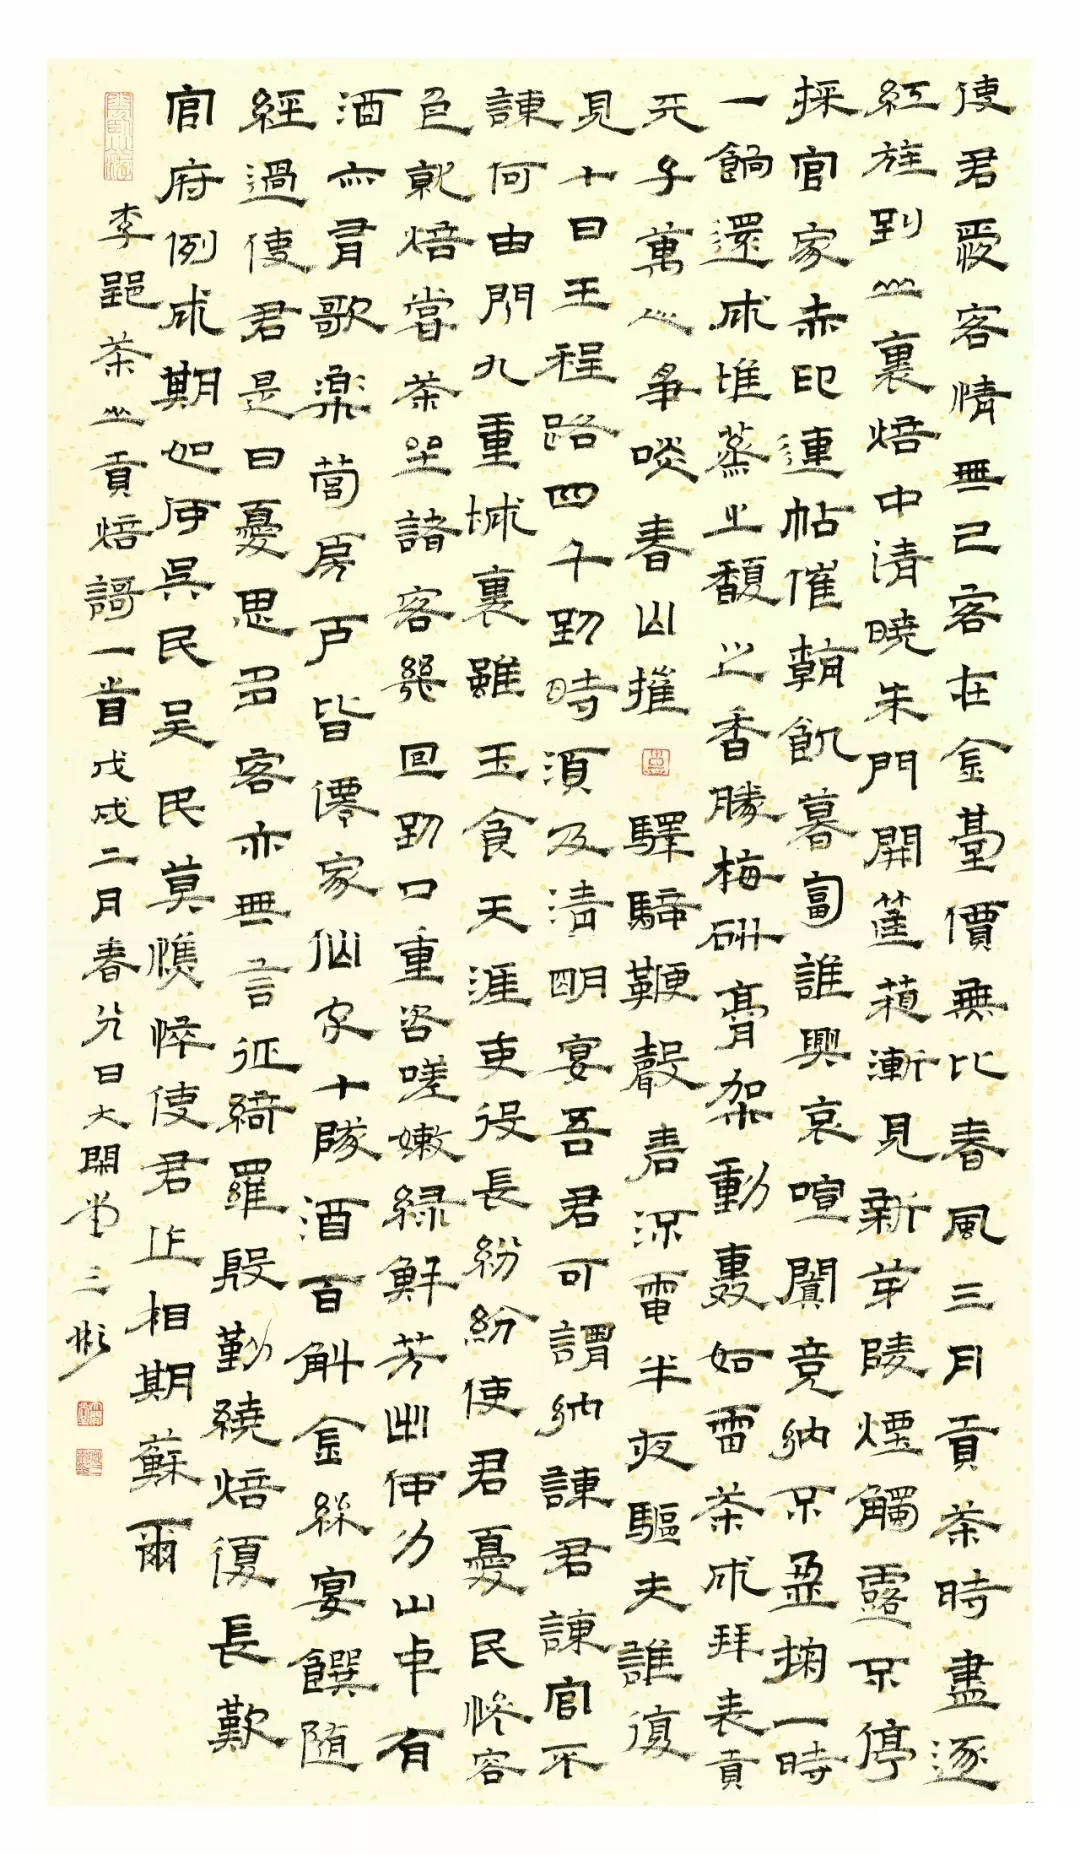 使君愛客情無已客在金臺價無比春風三月貢茶時盡逐
紅旌到山裏焙中清曉朱門開筐箱漸見新芽陵煙觸露不停
採官家赤印連帖催朝飢暮匐誰興哀喧闐競納不盈掬一時
一餉還成堆蒸之馥之香勝梅研膏架動轟如雷茶成拜表貢
天子萬人爭啖春山摧驛騎鞭聲砉流電半夜驅夫誰復
見十日王程路四千到時須及清明宴吾君可謂納諫君諫官不
諫何由聞九重城裏雖玉食天涯吏役長紛紛使君憂民慘容
色就焙嘗茶坐諸客幾回到口重咨嗟嫩綠鮮芳出何力山中有
酒亦有歌樂營房戶皆僊家仙家十隊酒百斛金絲宴饌隨
經過使君是日憂思多客亦無言征綺羅殷勤繞焙復長歎
官府例成期如何吳民吳民莫憔悴使君作相期蘇爾
李郢茶山貢焙謌一首戊戌二月春分日大閑堂三彬